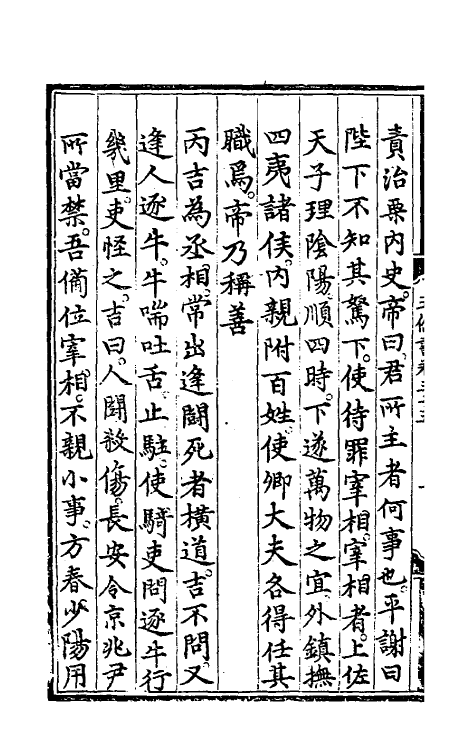 責治粟內史。帝曰。君所主者何事也。平謝曰
陛下不知其駑下。使待罪宰相。宰相者。上佐
天子理陰陽順四時。下遂萬物之宜。外鎮撫
四夷諸侯。內親附百姓。使卿大夫各得任其
職焉。帝乃稱善
丙吉為丞相。常出逢鬪死者橫道。吉不問。又
逢人逐牛。牛喘吐舌。止駐。使騎吏問逐牛行
幾里。吏怪之。吉曰。人鬪殺傷。長安令京兆尹
所當禁。吾備位宰相。不親小事。方春少陽用